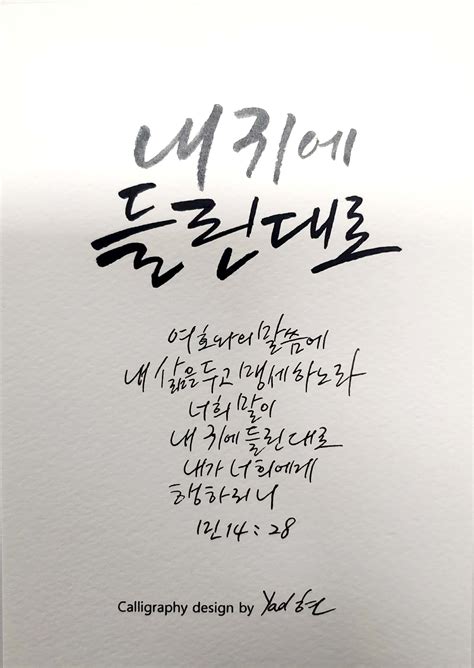 내 귀에
들린대로
여호와의 말씀에
내 삶을 두고 맹세하노라
너희 말이
내 귀에 들린대로
내가 너희에게
행하리니
민 14 : 28
Calligraphy design by Yad 현